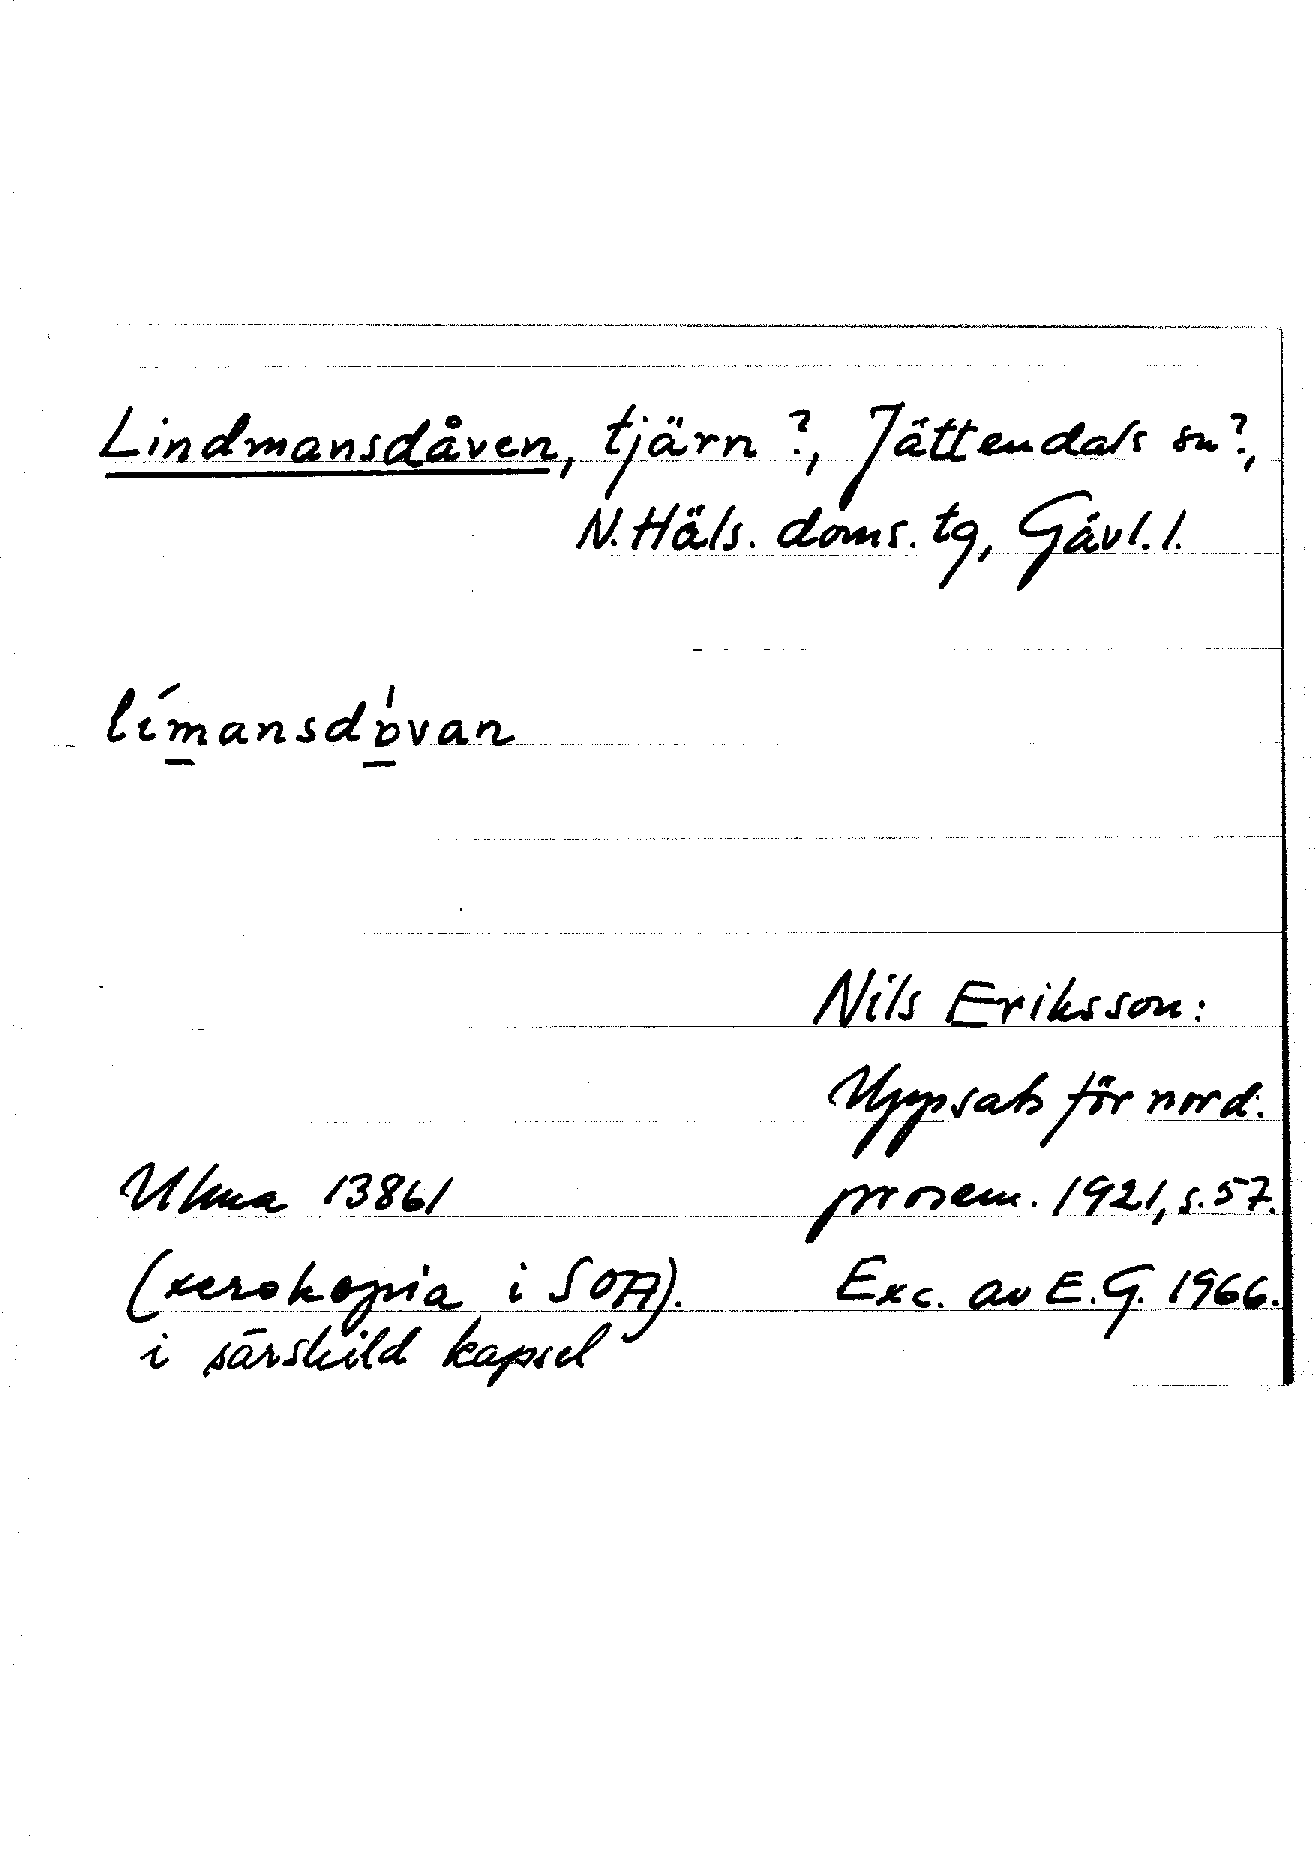 Lindmansdåven, tjärn?, Jättendals sn?,
N. Häls. doms. tg, Gävl. l.
límansdo̍van
Nils Eriksson:
Uppsats för nord.
Ulma 13861 prosem. 1921, s. 57.
(xerokopia i SOA). Exc. av E.G. 1966.
i särskild kapsel